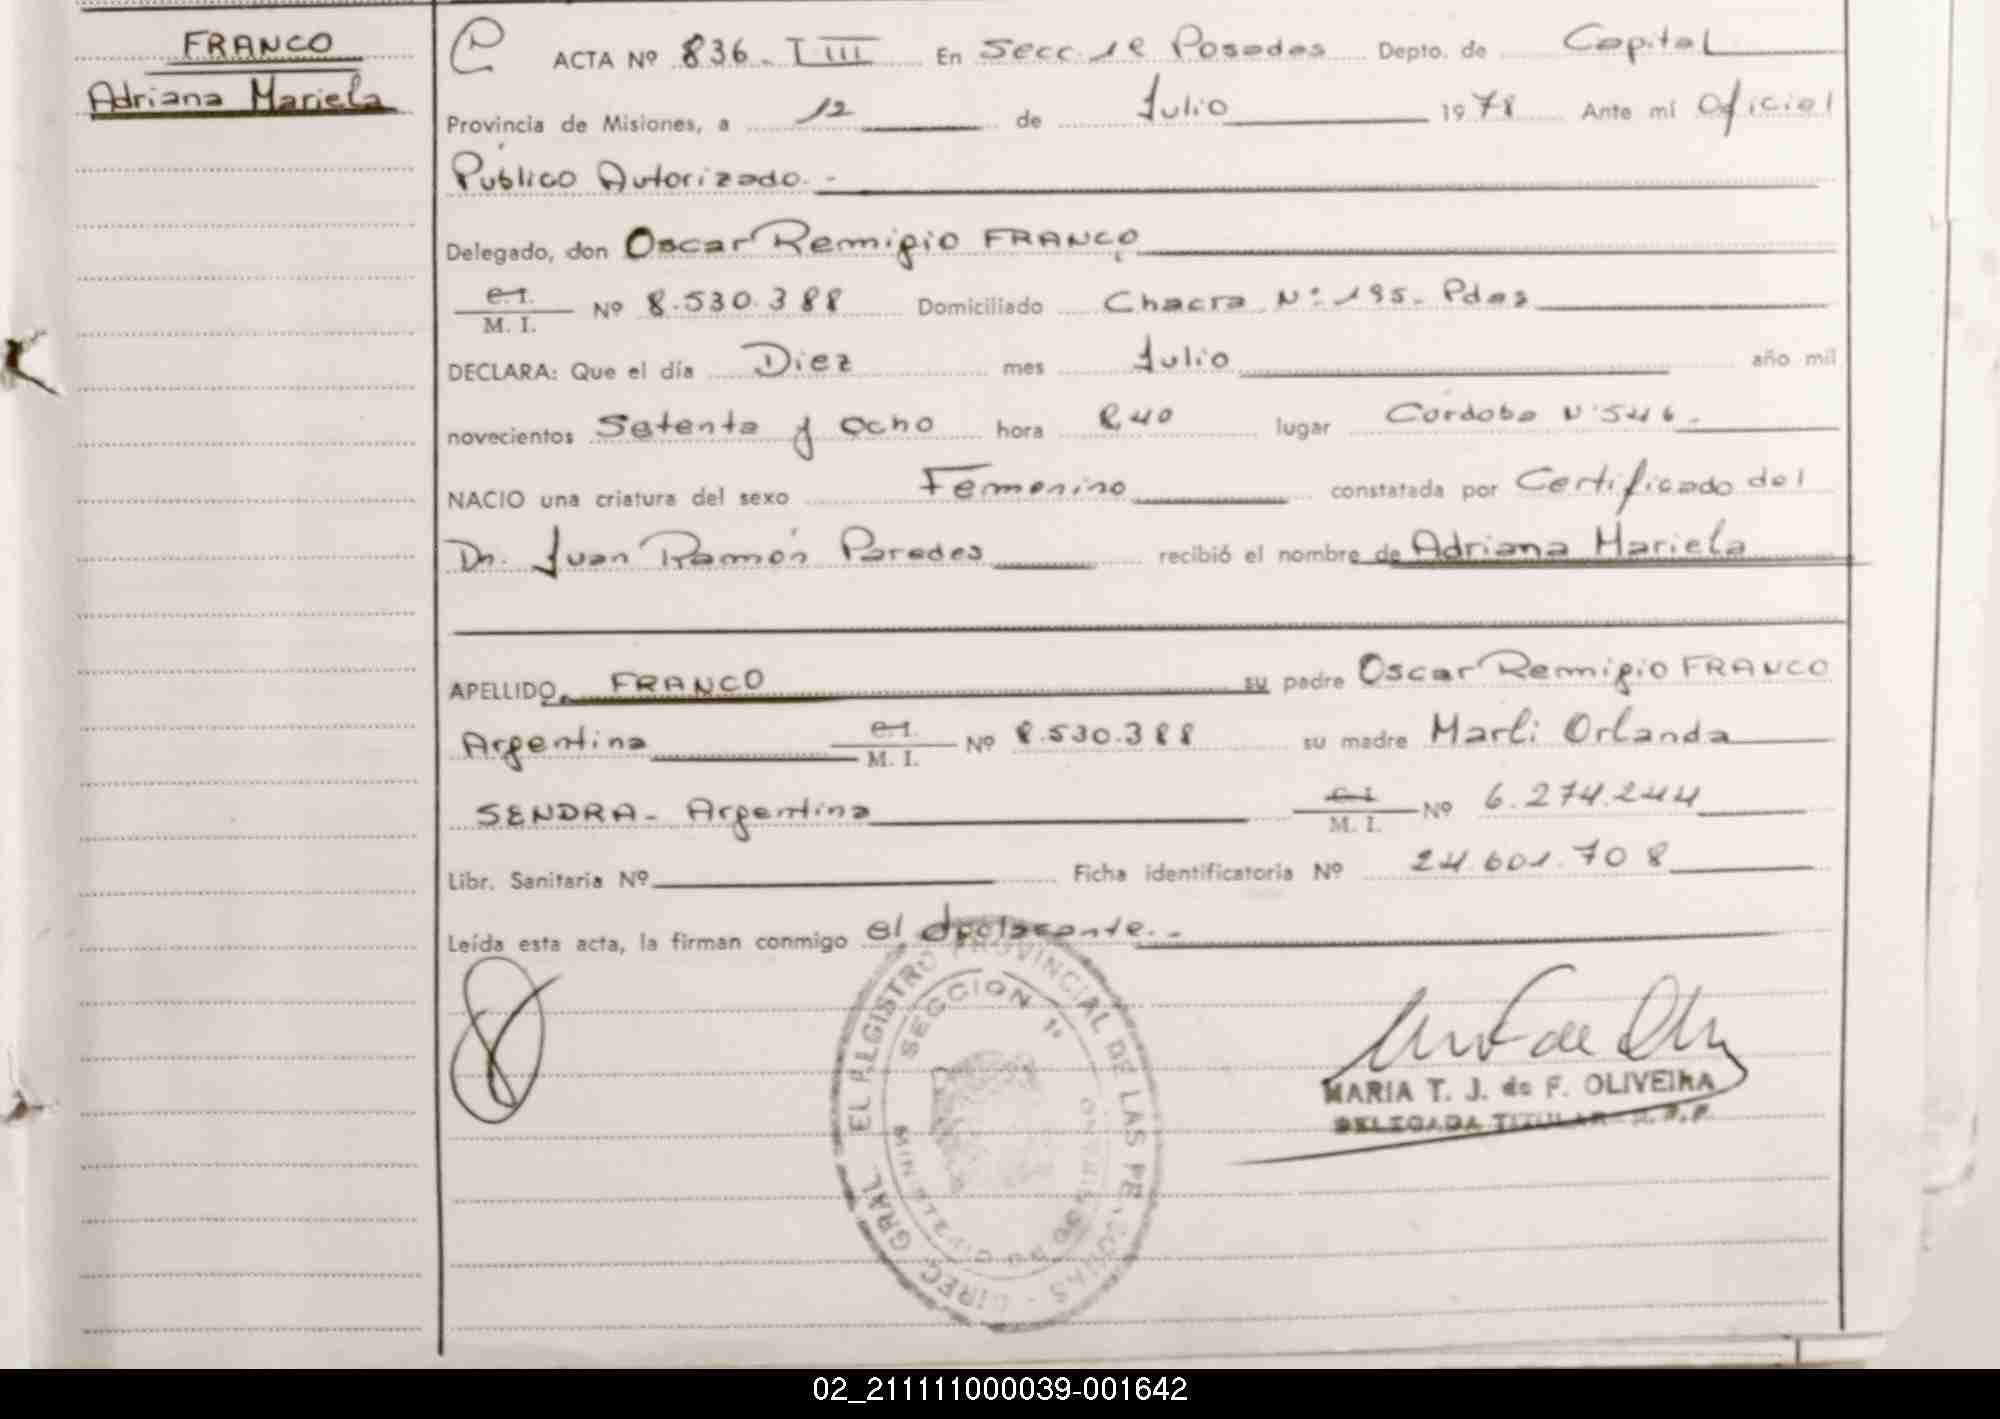 FRANCO
Adriana Mariela
ACTA Nº 836. T III En Secc. 1ª Posadas Depto. de Capital
Provincia de Misiones, a 12 de Julio 1978 Ante mí Oficial
Público Autorizado.-
Delegado, don Oscar Remigio FRANCO
C.I. M. I. Nº 8.530.388 Domiciliado Chacra Nº 195. Pdas
DECLARA: Que el día Diez mes Julio año mil
novecientos Setenta y ocho hora 8,40 lugar Córdoba Nº 546.
NACIO una criatura del sexo Femenino constatada por Certificado del
Dr. Juan Ramón Paredes recibió el nombre de Adriana Mariela
APELLIDO FRANCO su padre Oscar Remigio FRANCO
Argentina C.I. M. I. Nº 8.530.388 su madre Marli Orlanda
SENDRA- Argentina C.I. M. I. Nº 6.274.244
Libr. Sanitaria Nº Ficha identificatoria Nº 24.601.708
Leída esta acta, la firman conmigo el declarante.-
DIREC. GRAL. EL REGISTRO PROVINCIAL DE LAS PERSONAS
SECCION 1ª
MARIA T. J. de F. OLIVEIRA
DELEGADA TITULAR
02_211111000039-001642